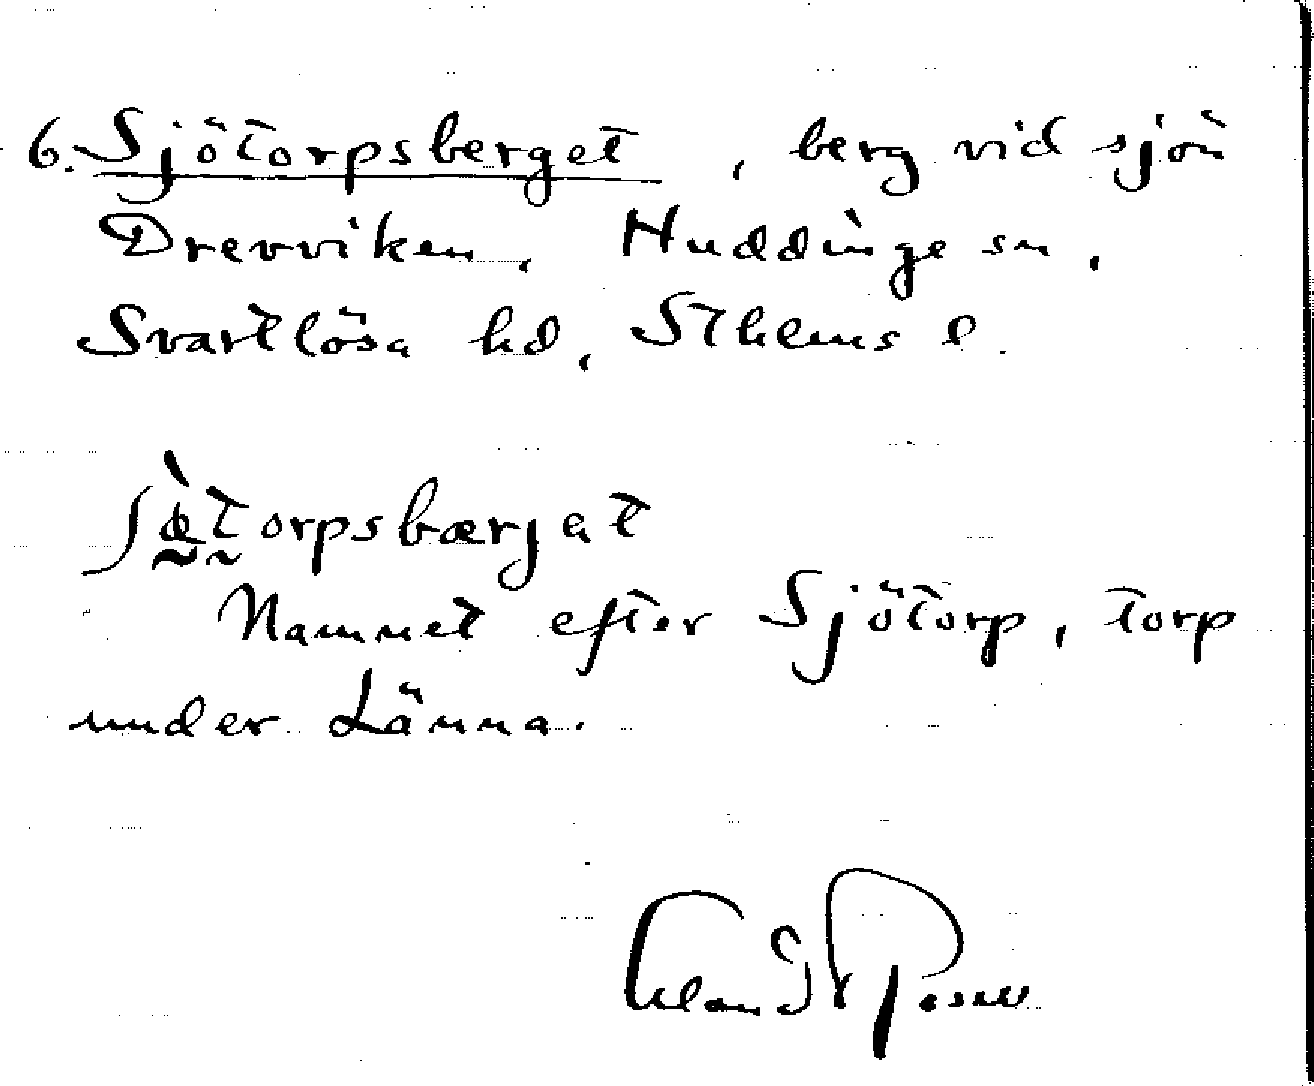 6. Sjötorpsberget, berg vid sjön
Drevviken, Huddinge sn,
Svartlösa hd, Sthlms l.
ʃø̀torpsbærjat
Namnet efter Sjötorp, torp
under Länna.